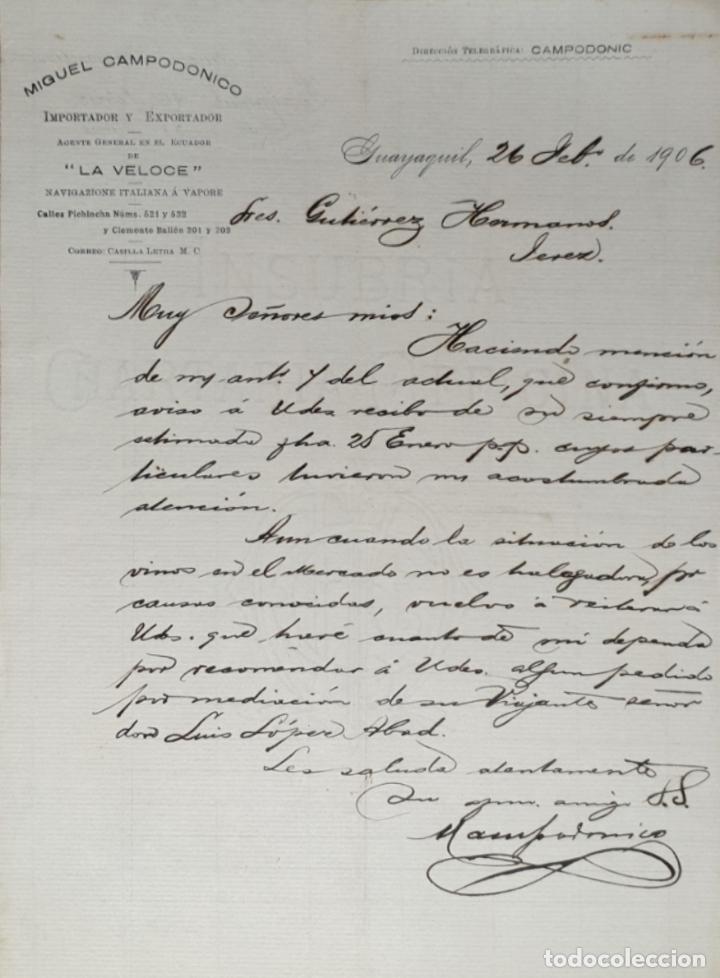 MIGUEL CAMPODONICO
IMPORTADOR Y EXPORTADOR
AGENTE GENERAL EN EL ECUADOR
DE
"LA VELOCE"
NAVIGAZIONE ITALIANA Á VAPORE
Calles Pichincha Núms. 521 y 532
y Clemente Ballén 201 y 203
CORREO: CASILLA LETRA M. C
DIRECCIÓN TELEGRÁFICA: CAMPODONIC
Guayaquil, 26 Feb.º de 1906.
Sres. Gutiérrez Hermanos.
Jerez.
Muy Señores mios:
Haciendo mención
de my antr. 7 del actual, que confirmo,
aviso á Udes recibo de su siempre
estimada fha. 25 Enero p.p. cuyos par-
ticulares tuvieron mi acostumbrada
atención.
Aun cuando la situación de los
vinos en el Mercado no es halagadora, por
causas conocidas, vuelvo á reiterar á
Uds. que haré cuanto de mi dependa
por recomendar á Udes. algun pedido
por mediación de su Viajante señor
don Luis López Abad.
Les saluda atentamente
su amigo S.S.
MCampodonico
todocoleccion